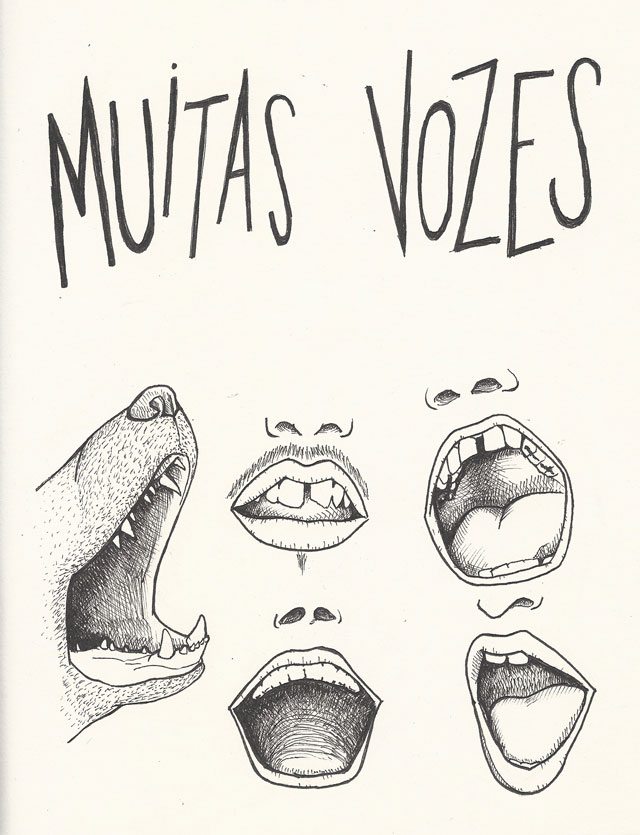 MUiTAS VOZES